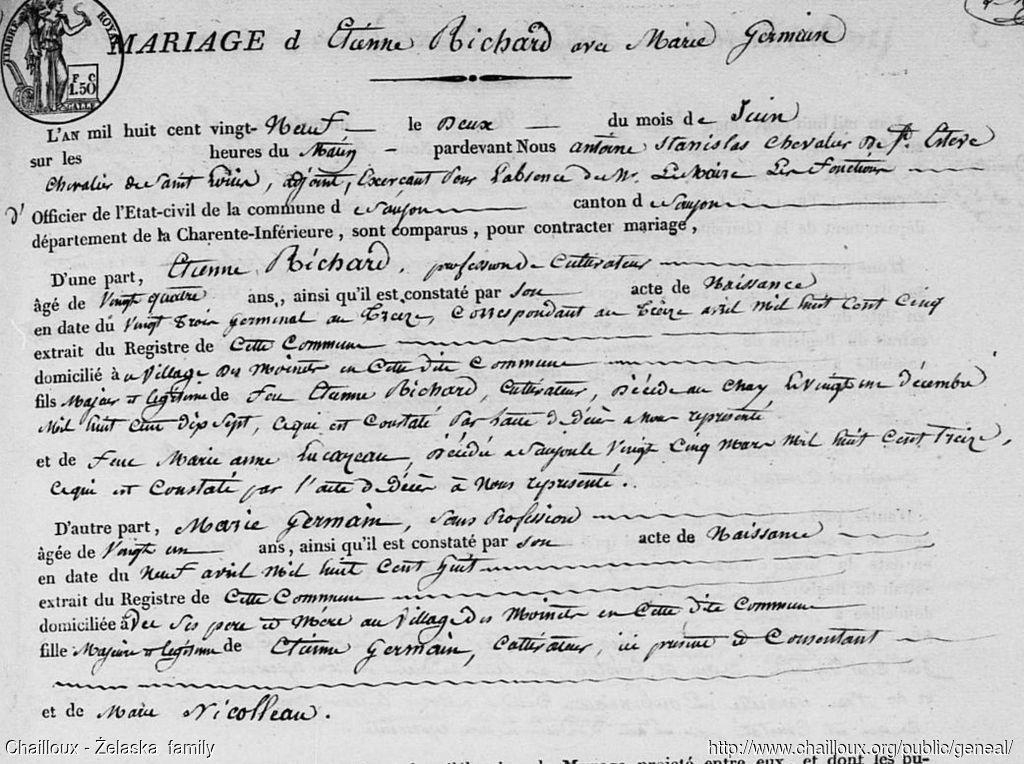 TIMBRE ROYAL
F. C
1.50
MARIAGE d Etienne Richard avec Marie Germain
L'AN mil huit cent vingt- Neuf le Deux du mois de Juin
sur les heures du Matin pardevant Nous antoine Stanislas Chevalier De St. Esteve
Chevalier de Saint Louis, adjoint, Exercant Pour L'absence de Mr. Le Maire Les Fonctions
d' Officier de l'Etat-civil de la commune d e Saujon canton d e Saujon
département de la Charente-Inférieure, sont comparus, pour contracter mariage,
D'une part, Etienne Richard, profession de Cultivateur
âgé de Vingt quatre ans, ainsi qu'il est constaté par son acte de Naissance
en date du Vingt Trois germinal an Treize, Correspondant au Treize avril Mil huit Cent Cinq
extrait du Registre de Cette Commune
domicilié à u Village des Moinets en Cette dite Commune
fils Majeur et legitime de Feu Etienne Richard, Cultivateur, Décédé au Chay le vingt un décembre
Mil huit cent dix sept, Ce qui est Constaté Par l'acte de décès a nous représenté
et de Feue Marie anne Lucazeau, décédée a Saujon le Vingt Cinq Mars Mil huit Cent Treize,
Ce qui est Constaté par l'acte de Décès à Nous représenté.
D'autre part, Marie Germain, Sans Profession
âgée de Vingt un ans, ainsi qu'il est constaté par son acte de Naissance
en date du Neuf avril Mil huit Cent huit
extrait du Registre de Cette Commune
domiciliée avec Ses pere et Mére au Village des Moinets en Cette dite Commune
fille Majeure et legitime de Etienne Germain, Cultivateur, ici présent et Consentant
et de Marie Nicolleau.
Chailloux - Żelaska family
http://www.chailloux.org/public/geneal/
de Mariage projeté entre eux, et dont les pu-